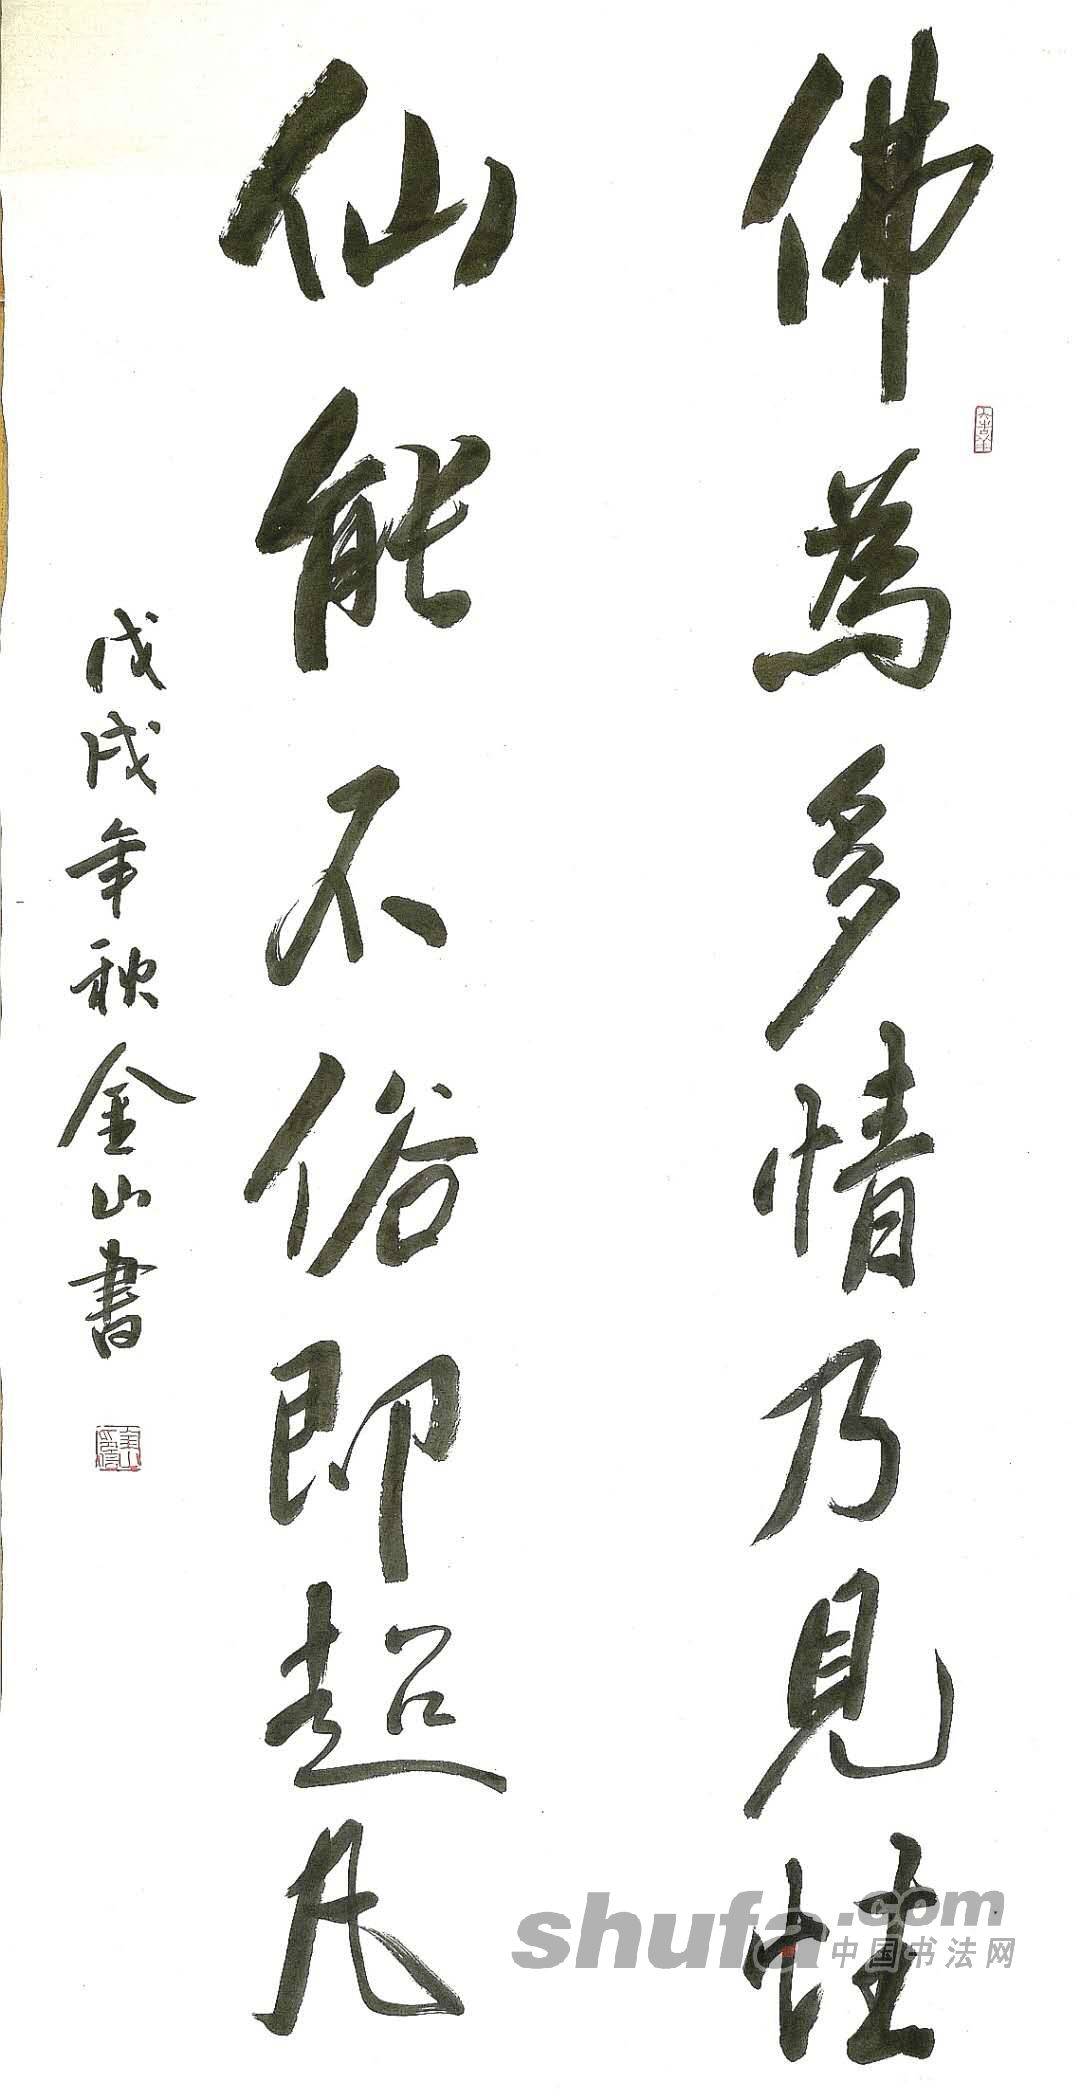 佛為多情乃見性
仙能不俗即超凡
戊戌年秋金山書
shufa.com
中国书法网